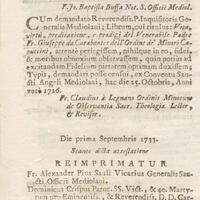 F. Jo. Baptista Bossa Not. S. Officii Mediol.
CUm demandato Reverendiss. P. Inquisitoris Generalis Mediolani; Librum, cui titulus: Vita,
virtù, predicatione, e prodigj del Venerabile Padre
Fr. Giuseppe da Carabantes dell' Ordine de' Minori Cappuccini,
attentè perlegissem, nihilque in eo, &
fidei, & moribus absonum observassem, quin potiùs ad
excitandam Fidelium pietatem opimum duxissem,
Typis, demandari posse censui, ex Conventu Sancti
Angeli Mediolani, hac die 25. Octobris, Anni
1726.
Fr. Claudius à Legnano Ordinis Minorum
de Observantia Sacr. Theolog. Lector
& Revisor.
Die prima Septembris 1733.
Stante dicta attestatione
REIMPRIMATUR
Fr. Alexander Pius Sauli Vicarius Generalis Sancti
Officii Mediolani.
Dominicus Crispus Paroc. SS. Vict., & 40. Martyrum
pro Eminentiss., & Reverendiss. D. D. Car-